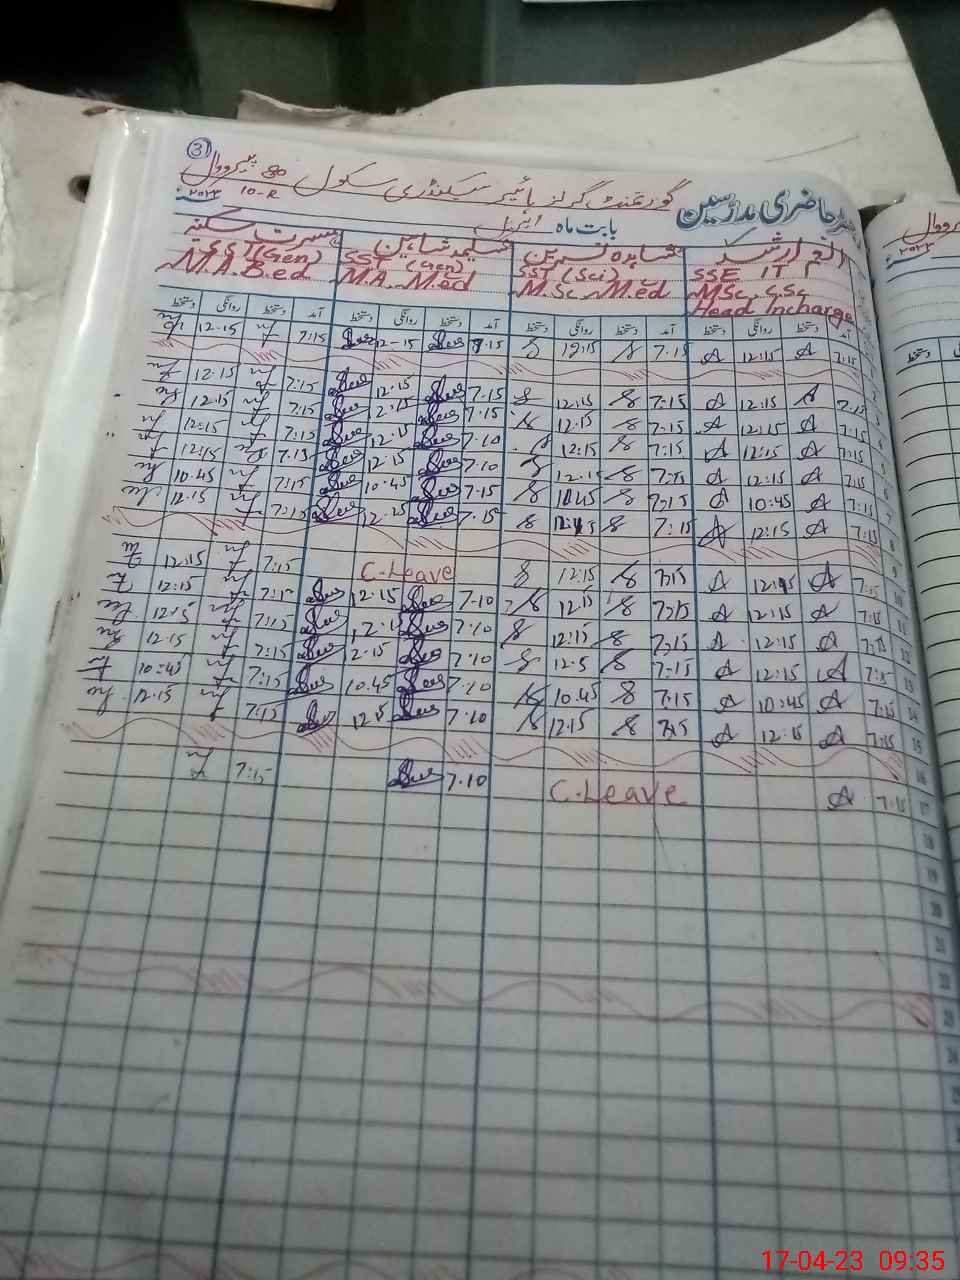 3
گورنمنٹ گرلز ہائیر سیکنڈری سکول 80 پیرووال
10-R
حاضری مدرسین
بابت ماہ اپریل ۲۰۲۳
انعم ارشد
SSE IT
M.Sc. C.Sc
Head Incharge
شاہدہ نسرین
SST (Sci)
M.Sc. M.ed
شاہین
SST (Gen)
M.A. M.ed
مسرت سکینہ
SST (Gen)
M.A. B.ed
آمد دستخط روانگی دستخط آمد دستخط روانگی دستخط آمد دستخط روانگی دستخط آمد دستخط روانگی دستخط
1 7:15 12:15 7:15 12:15 7.15 12-15 7:15 12.15
2
7:15 12:15 7:15 12:15 7.15 12.15 7:15 12.15
4 7:15 12:15 7:15 12:15 7.15 7:15 12.15
5 7:15 12:15 7:15 12:15 7.10 12.15 7:15 12:15
6 7:15 12:15 12.15 7.10 12.15 7:15 12:15
7 7:15 10:45 7:15 7.15 10.45 7:15 10.45
8 7:15 12:15 7:15 7.15 12.15 7:15 12.15
9
10 7:15 7:15 12:15 C.Leave 7:15 12:15
11 7:15 12:15 7:15 12:15 7.10 12.15 7:15 12:15
12 7:15 12:15 7:15 12:15 7.10 7:15
13 7:15 12:15 7:15 7.10 12.15 7:15 12.15
14 7:15 10:45 7:15 10.45 7.10 10.45 7:15 10:45
15 7:15 12:15 7:15 12:15 7.10 12.15 7:15 12.15
16
17 7:15 C.Leave 7.10 7:15
18
19
20
21
22
23
24
25
پیرووال
۲۰۲۳
دستخط
17-04-23 09:35